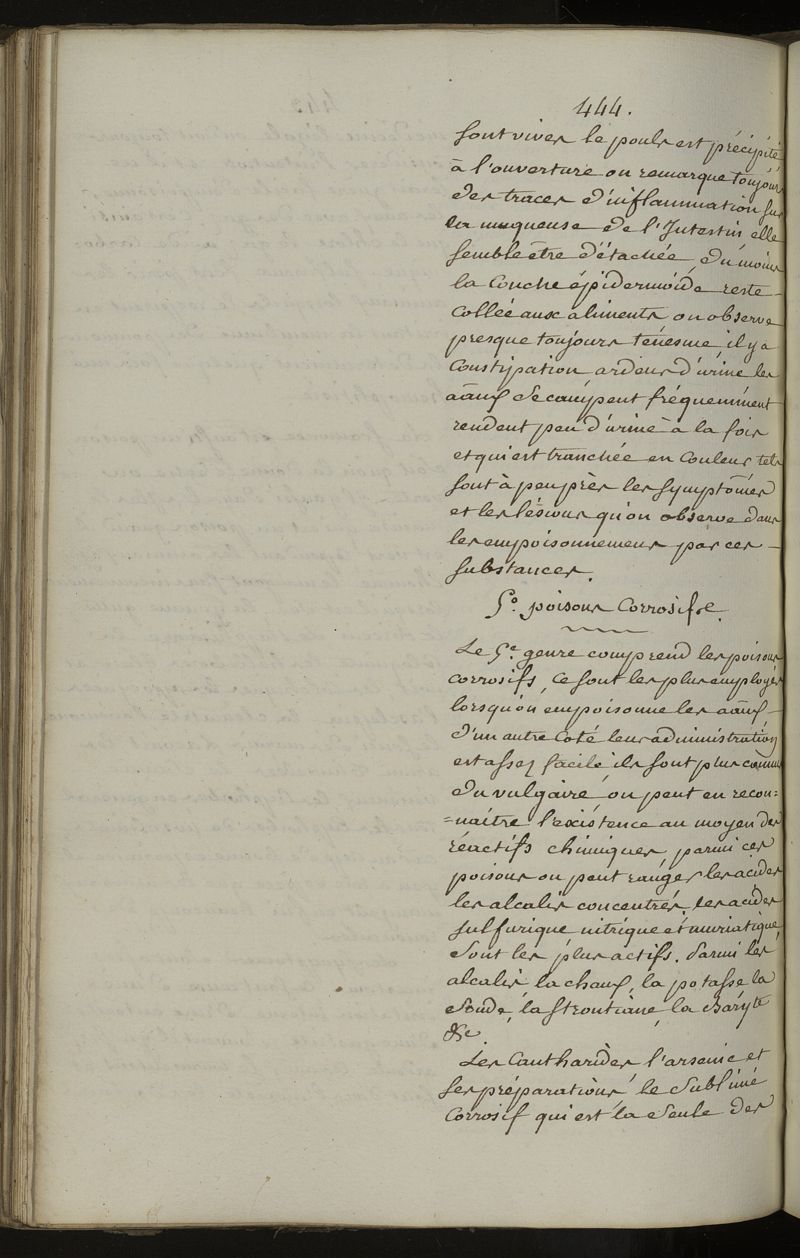 444.
sont vives le pouls est précipité
à l'ouverture on remarque toujours
des traces d'inflammation sur
la muqueuse de l'Intestin elle
semble être détachée, du moins
la Couche épidermoïde reste
Collée aux aliments on observe
presque toujours ténesme, il y a
Constipation ardeur d'urine les
aãux se campent fréquemment
rendent peu d'urine à la fois
et qui est tranchée en Couleur tels
sont à peu près les symptômes
et les lésions qu'on observe dans
les empoisonnemens par ces
substances.
5.° poisons Corrosifs.
Le 5.e genre comprend les poisons
corrosifs, ce sont les plus employés
lorsqu'on empoisonne les aãux
d'un autre Coté leur administration
est assez facile ils sont plus connus
du vulgaire on peut en recon=
=naitre l'existence au moyen des
réactifs chimiques, parmi ces
poisons on peut ranger les acides
les alcalis concentrés, les acides
sulfurique nitrique et muriatique
sont les plus actifs. Parmi les
alcalis la chaux, la potasse la
soude, la strontiane, la Baryte
&c.
Les Cantharides, l'arsenic et
ses préparations le sublimé
Corrosif qui est la seule des